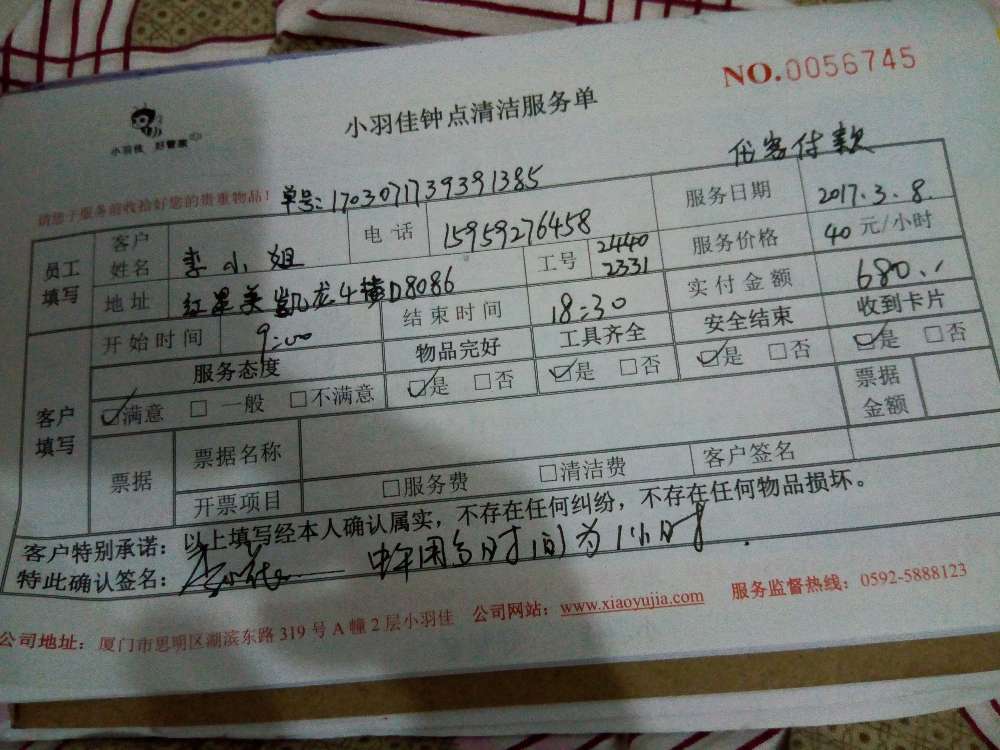 NO.0056745
小羽佳 好管家
小羽佳钟点清洁服务单
代客付款
请您于服务前收拾好您的贵重物品！
单号:170307173939​1385
员工填写 客户姓名 李小姐 电话 15959276458 服务日期 2017.3.8.
地址 红星美凯龙4楼D8086 工号 2440 2331 服务价格 40 元/小时
开始时间 9:00 结束时间 18:30 实付金额 680.
客户填写 服务态度 物品完好 工具齐全 安全结束 收到卡片
☑满意 □一般 □不满意 ☑是 □否 ☑是 □否 ☑是 □否 ☑是 □否
票据 票据名称 票据金额
开票项目 □服务费 □清洁费 客户签名
客户特别承诺：以上填写经本人确认属实，不存在任何纠纷，不存在任何物品损坏。
特此确认签名： 中午用餐时间为1小时.
公司地址：厦门市思明区湖滨东路319号A幢2层小羽佳 公司网站：www.xiaoyujia.com 服务监督热线：0592-5888123